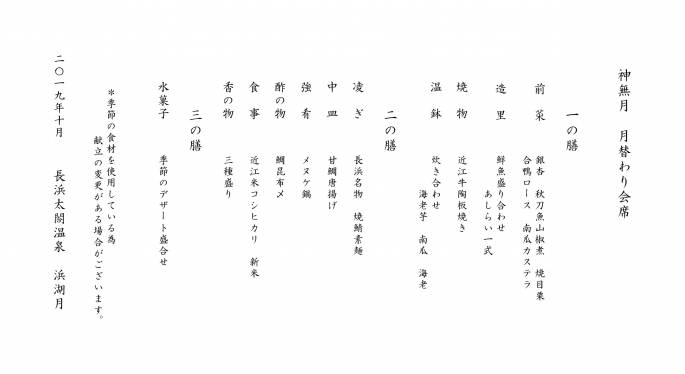 神無月　月替わり会席
一の膳
前　菜　　銀杏　秋刀魚山椒煮　焼目栗
合鴨ロース　南瓜カステラ
造　里　　鮮魚盛り合わせ
あしらい一式
焼　物　　近江牛陶板焼き
温　鉢　　炊き合わせ
海老芋　南瓜　海老
二の膳
凌　ぎ　　長浜名物　焼鯖素麺
中　皿　　甘鯛唐揚げ
強　肴　　メヌケ鍋
酢の物　　鯛昆布〆
食　事　　近江米コシヒカリ　新米
香の物　　三種盛り
三の膳
水菓子　　季節のデザート盛合せ
＊季節の食材を使用している為
献立の変更がある場合がございます。
二〇一九年十月　　長浜太閤温泉　浜湖月